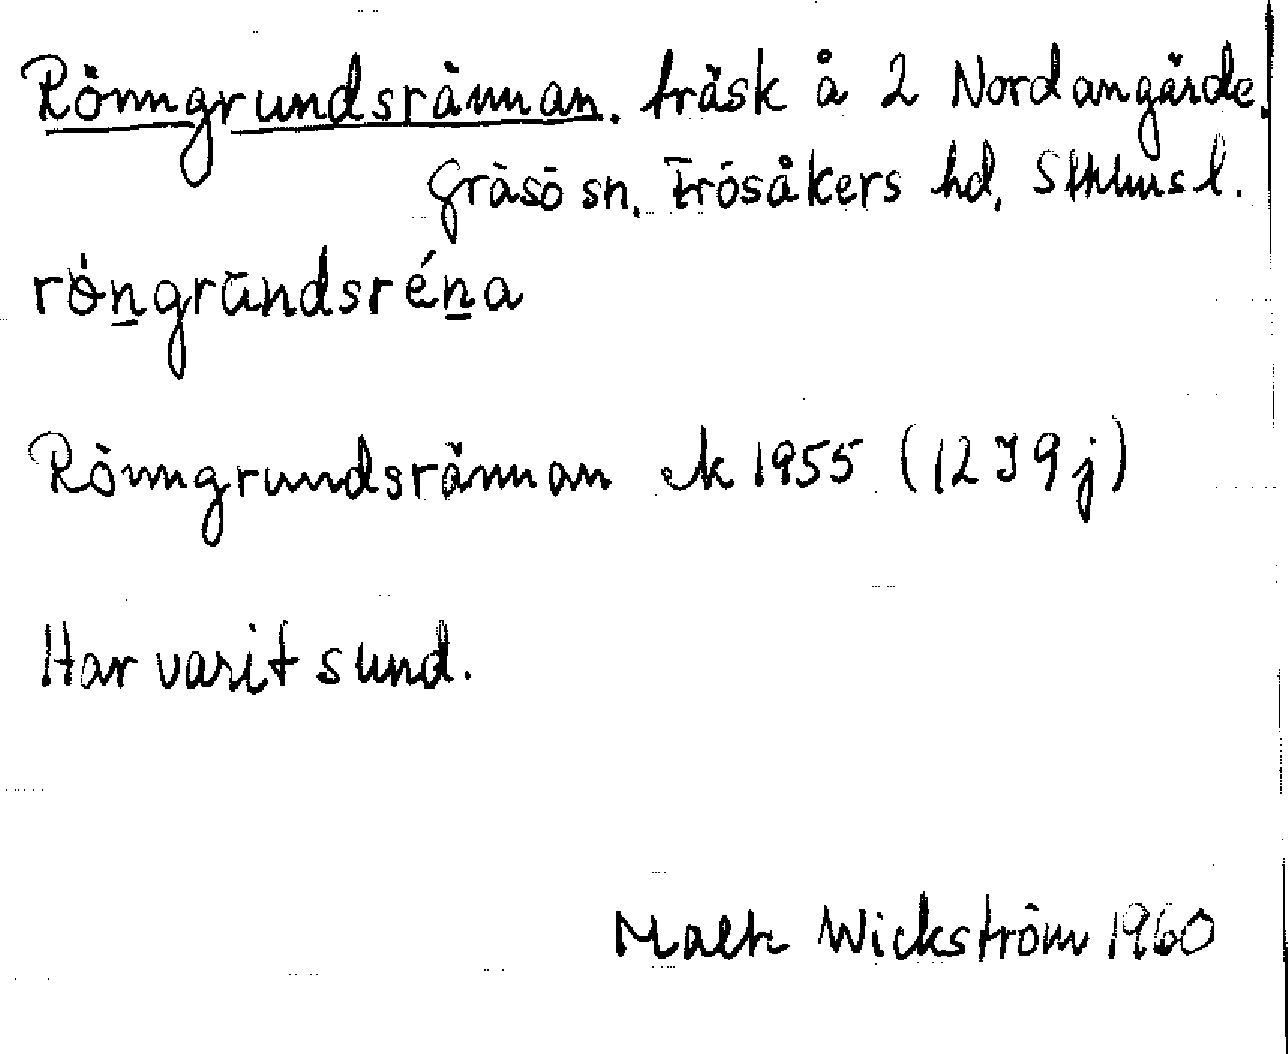 Rönngrundsrännan. träsk å 2 Nordangärde.
Gräsö sn. Frösåkers hd. Sthlms l.
rö́ngrūndsréna
Rönngrundsrännan ek 1955 (12 I 9 j)
Har varit sund.
Wickström 1960